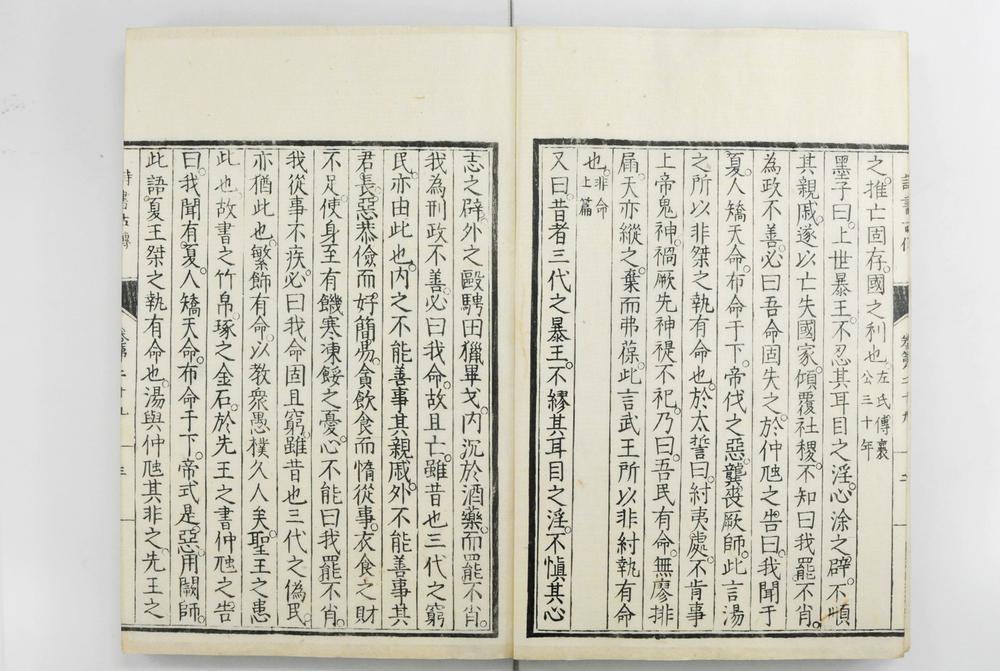 詩書古傳 卷第二十九 二
之。推亡固存。國之利也。左氏傳襄
公三十年
墨子曰。上世暴王。不忍其耳目之淫。心涂之辟。不順
其親戚。遂以亡失國家。傾覆社稷。不知曰我罷不肖。
為政不善。必曰吾命固失之。於仲虺之告曰。我聞于
夏。人矯天命。布命于下。帝伐之惡。龔喪厥師。此言湯
之所以非桀之執有命也。於太誓曰。紂夷處。不肯事
上帝鬼神。禍厥先神禔不祀。乃曰。吾民有命。無廖排
扇。天亦縱之。棄而弗葆。此言武王所以非紂執有命
也。非命
上篇
又曰。昔者三代之暴王。不繆其耳目之淫。不慎其心
志之辟。外之敺騁田獵畢弋。內沉於酒藥。而罷不肖。
我為刑政不善。必曰我命。故且亡。雖昔也三代之窮
民。亦由此也。內之不能善事其親戚。外不能善事其
君長。惡恭儉而好簡昜。貪飲食而惰從事。衣食之財
不足。使身至有饑寒凍餒之憂。心不能曰我罷不肖。
我從事不疾。必曰我命固且窮。雖昔也三代之偽民。
亦猶此也。繁飾有命。以教衆愚樸久人矣。聖王之患
此也。故書之竹帛。琢之金石。於先王之書仲虺之告
曰。我聞有夏。人矯天命。布命于下。帝式是惡。用闕師。
此語夏王桀之執有命也。湯與仲虺其非之。先王之
詩書古傳 卷第二十九 三